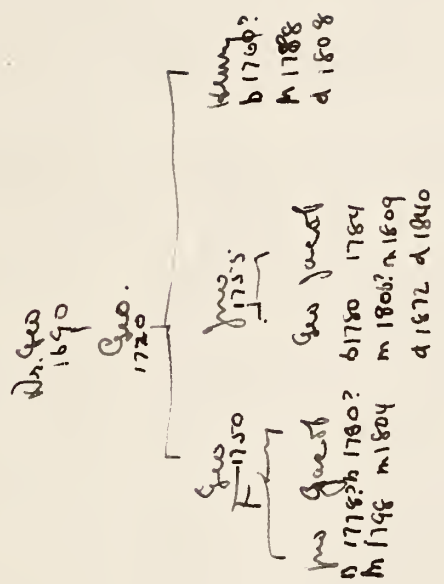 Dr. Geo
1690
Geo.
1720
Geo
1750
Jno
1755
Henry
b 1760?
m 1788
d 1808
Jno Jacob
b 1778? b 1780?
m 1798 m 1804
Geo Jacob
b 1780 1784
m 1806? m 1809
d 1872 d 1840